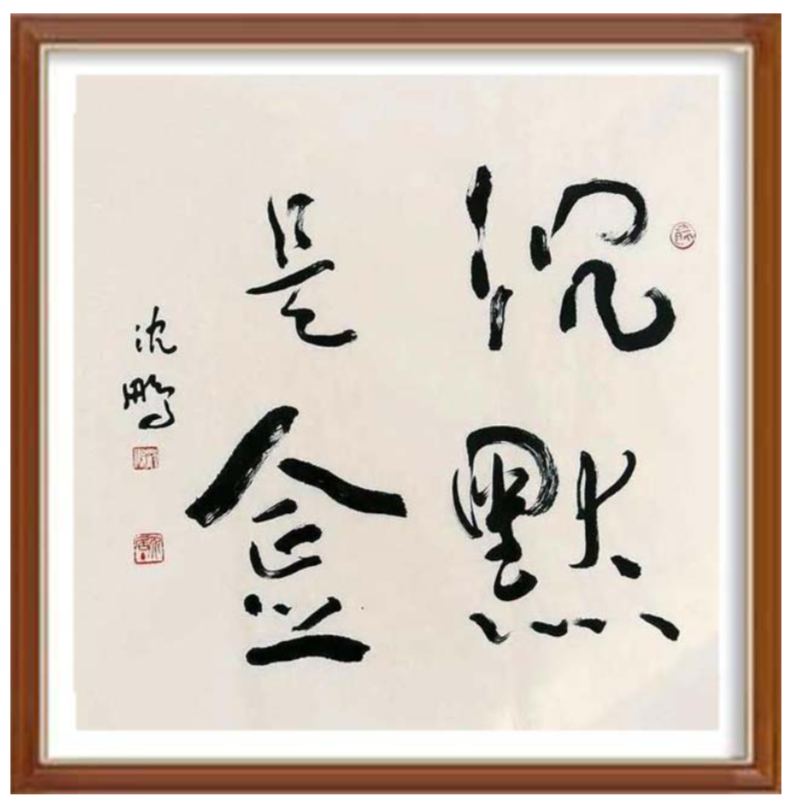 沉默
是金
沈鹏